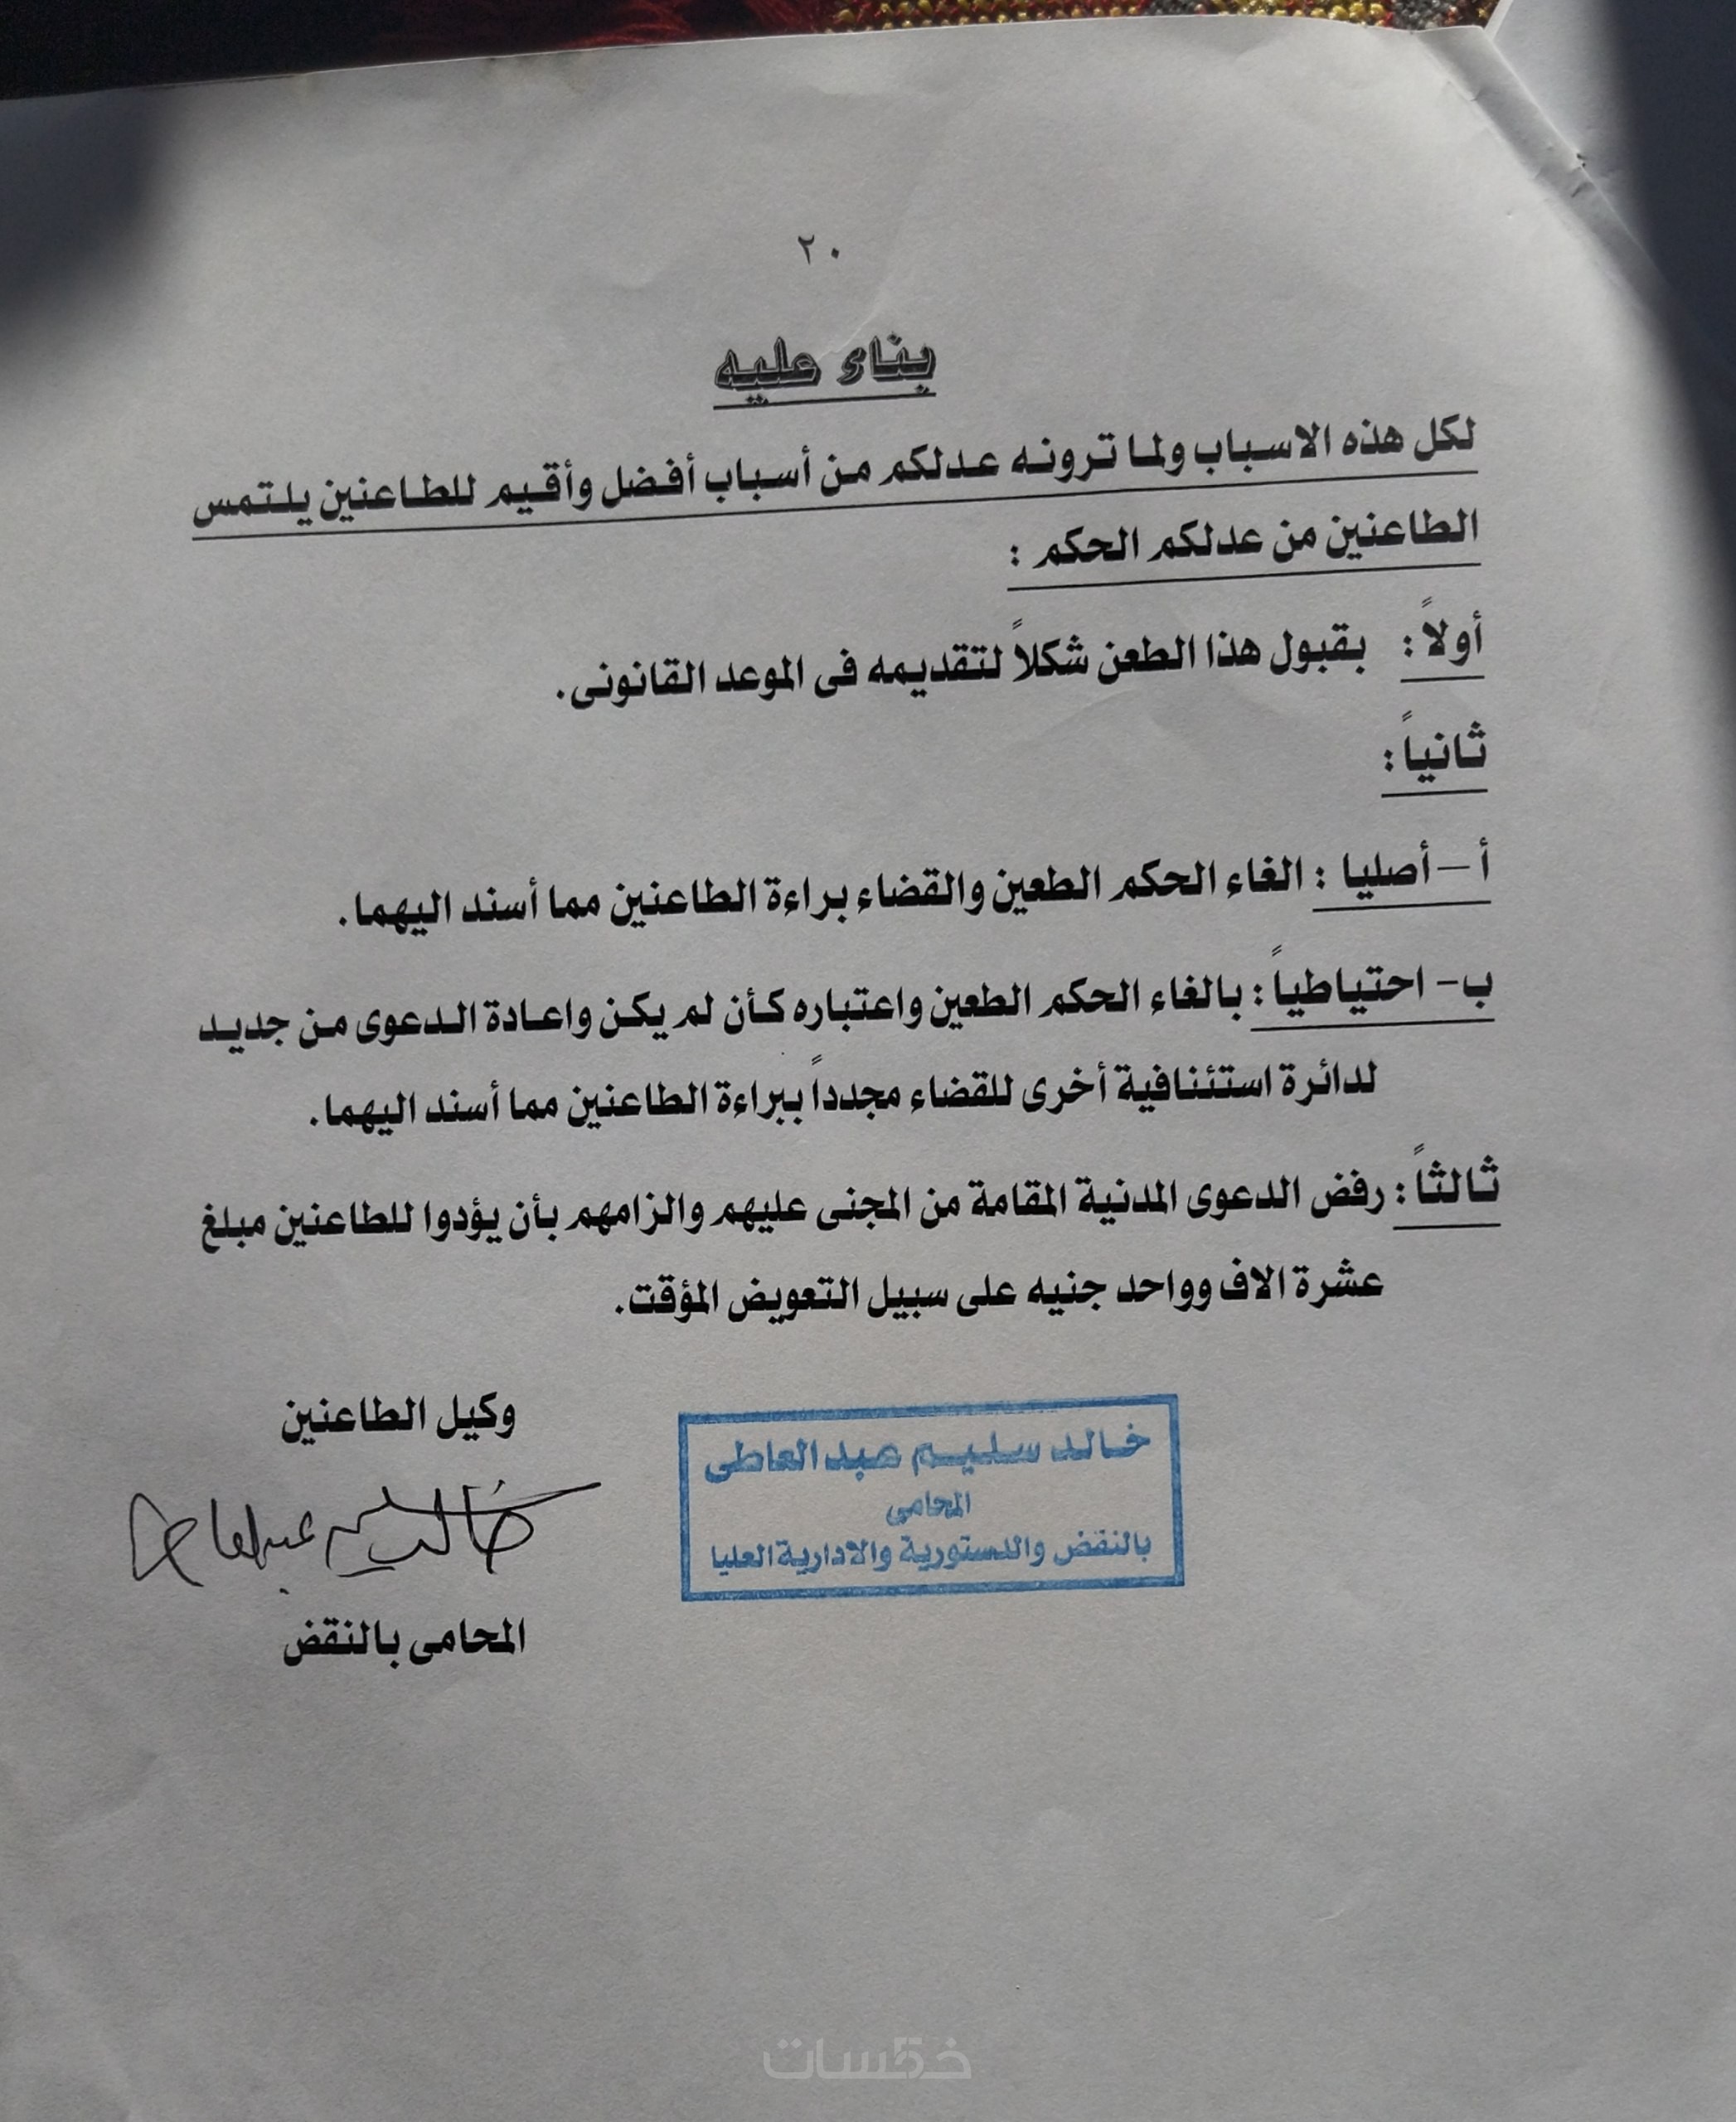 ٢٠
بناء عليه
لكل هذه الاسباب ولما ترونه عدلكم من أسباب أفضل وأقيم للطاعنين يلتمس
الطاعنين من عدلكم الحكم :
أولاً : بقبول هذا الطعن شكلاً لتقديمه فى الموعد القانونى.
ثانياً :
أ – أصليا : الغاء الحكم الطعين والقضاء براءة الطاعنين مما أسند اليهما.
ب- احتياطياً : بالغاء الحكم الطعين واعتباره كأن لم يكن واعادة الدعوى من جديد
لدائرة استئنافية أخرى للقضاء مجدداً ببراءة الطاعنين مما أسند اليهما.
ثالثاً : رفض الدعوى المدنية المقامة من المجنى عليهم والزامهم بأن يؤدوا للطاعنين مبلغ
عشرة الاف وواحد جنيه على سبيل التعويض المؤقت.
وكيل الطاعنين
خالد سليم عبد العاطى
المحامى
بالنقض والدستورية والادارية العليا
خالد سليم عبد العاطى
المحامى بالنقض
خمسات